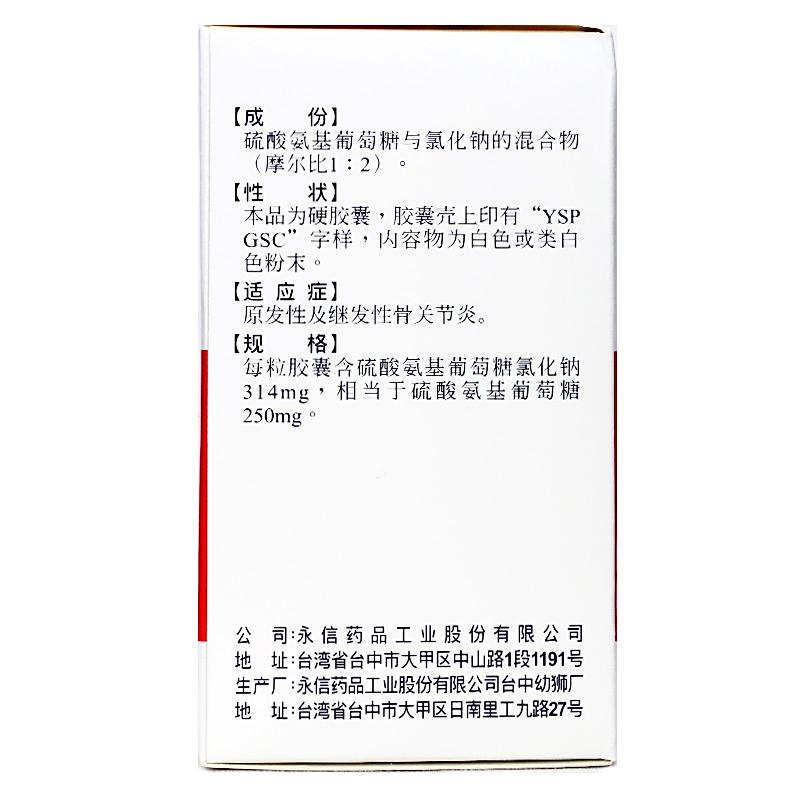 【成 份】
硫酸氨基葡萄糖与氯化钠的混合物
（摩尔比1：2）。
【性 状】
本品为硬胶囊，胶囊壳上印有“YSP
GSC”字样，内容物为白色或类白
色粉末。
【适 应 症】
原发性及继发性骨关节炎。
【规 格】
每粒胶囊含硫酸氨基葡萄糖氯化钠
314mg，相当于硫酸氨基葡萄糖
250mg。
公 司:永信药品工业股份有限公司
地 址:台湾省台中市大甲区中山路1段1191号
生产厂:永信药品工业股份有限公司台中幼狮厂
地 址:台湾省台中市大甲区日南里工九路27号